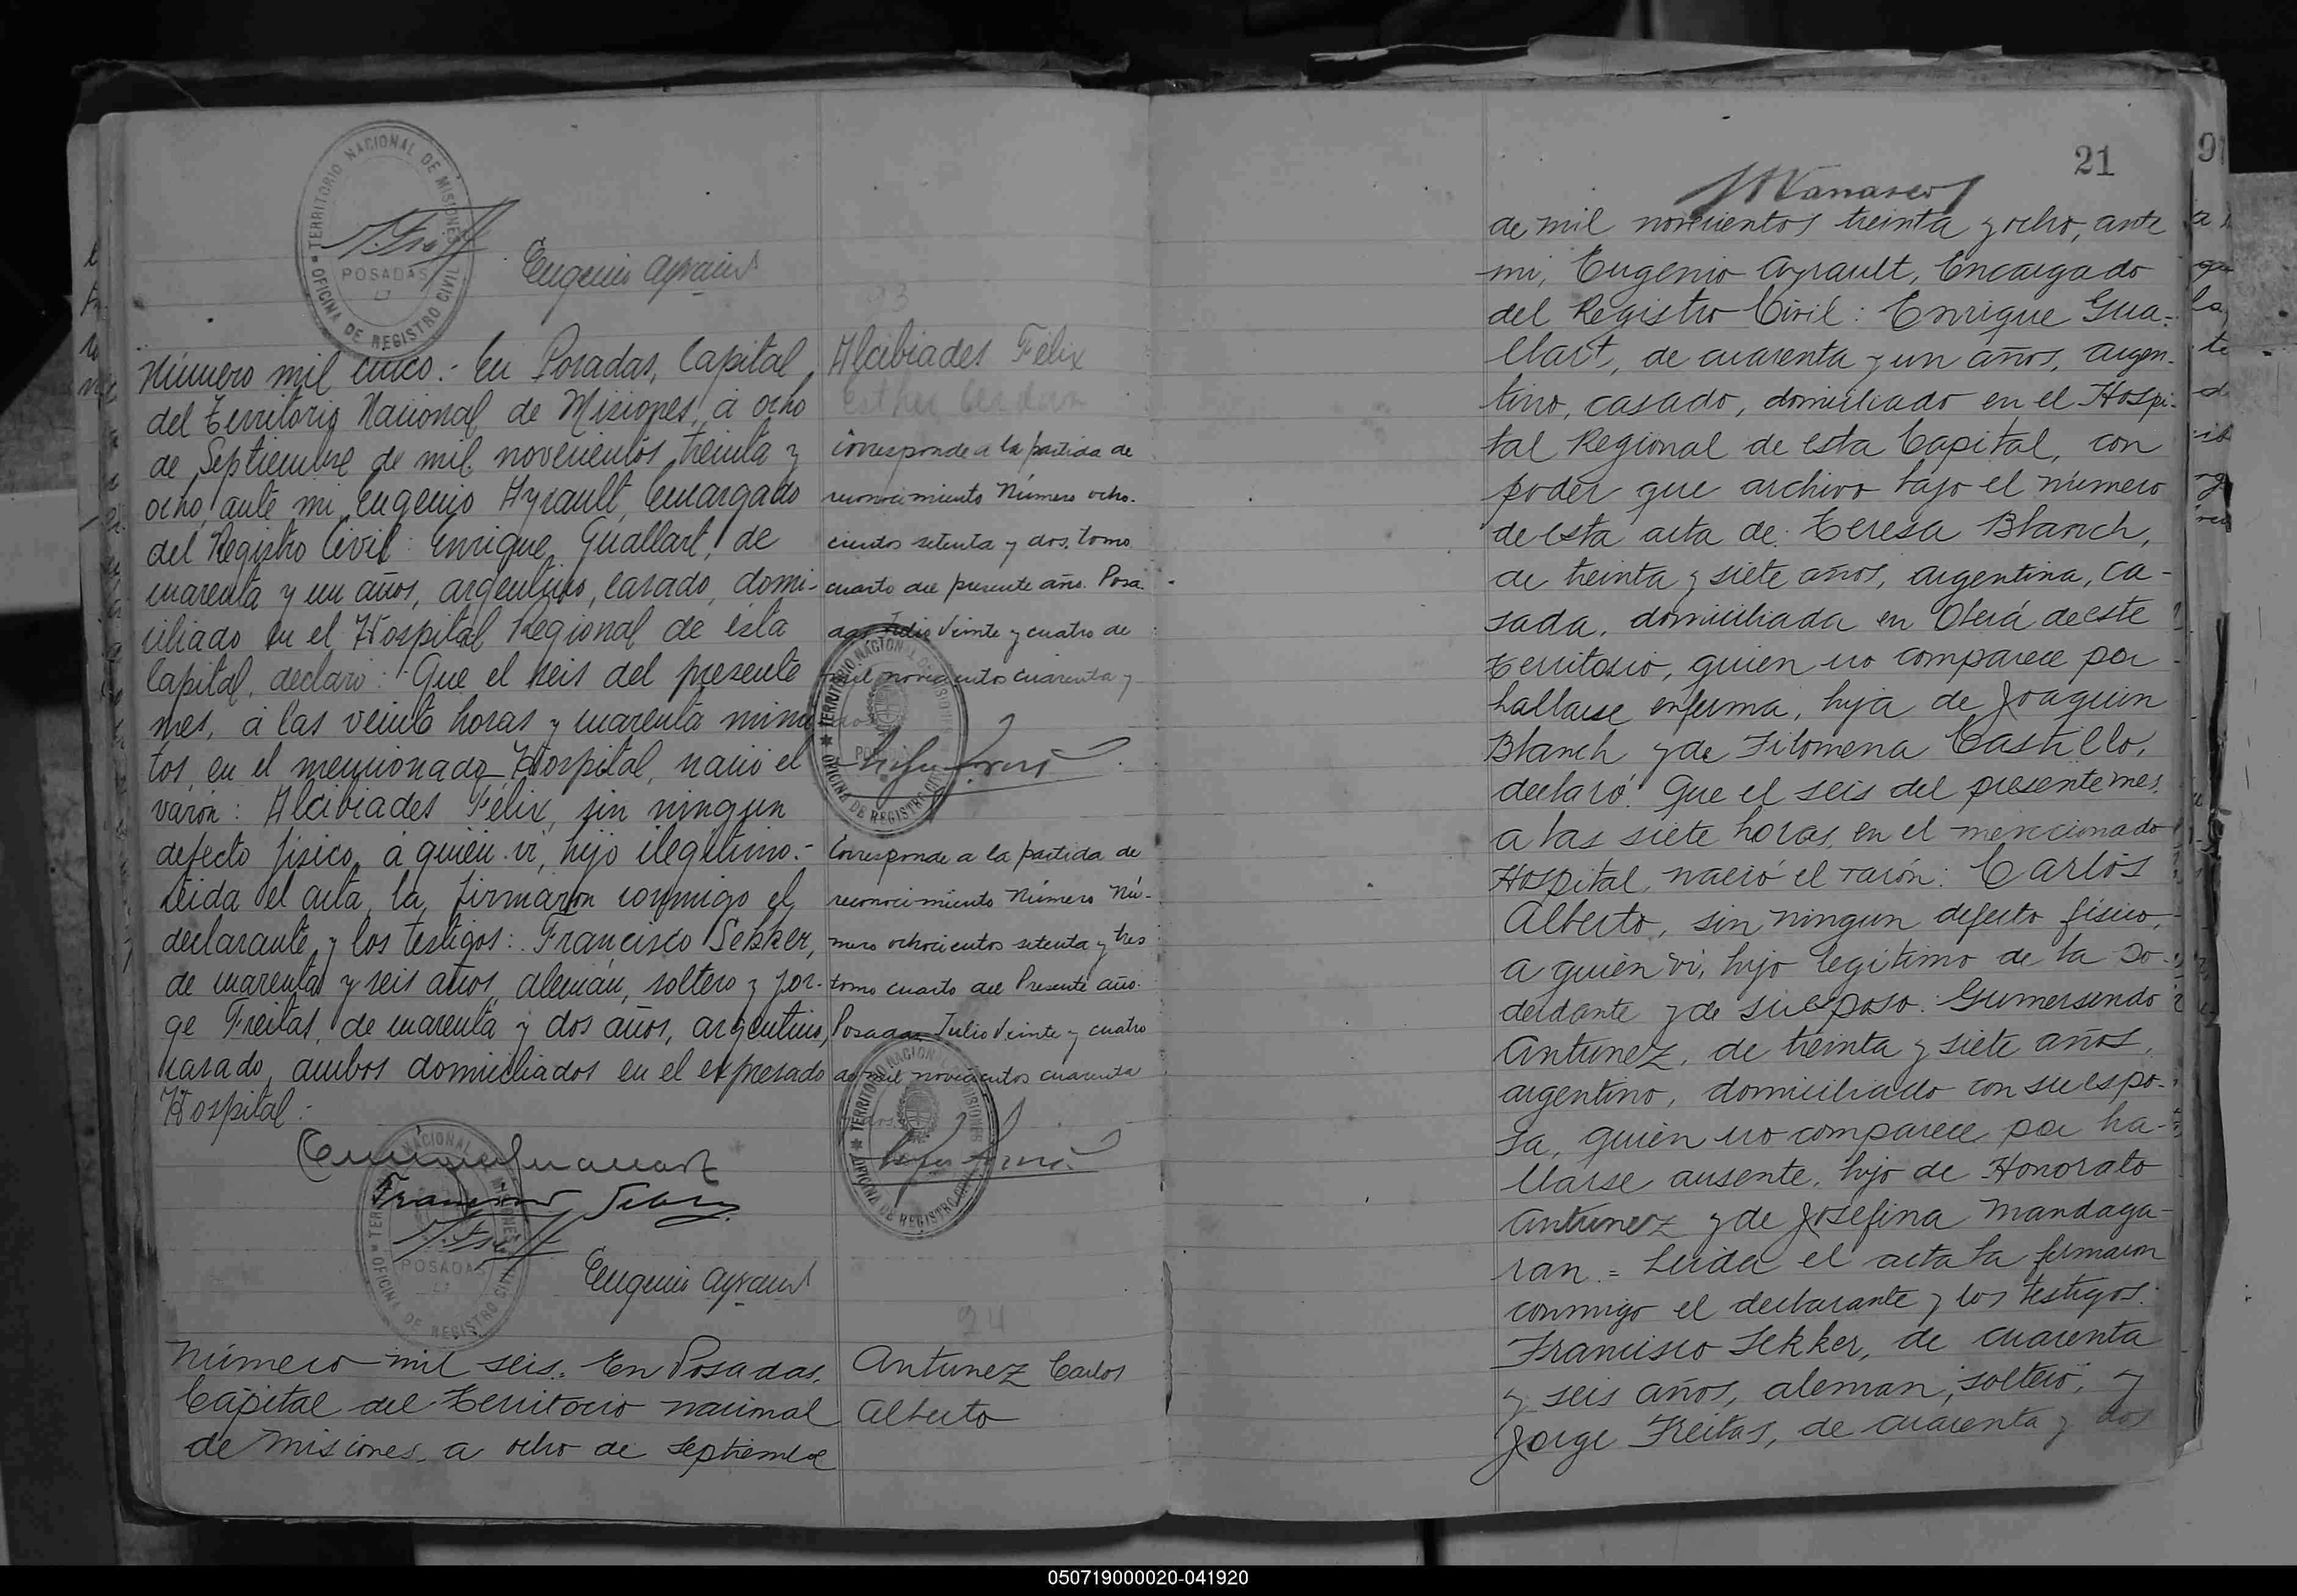 TERRITORIO NACIONAL DE MISIONES
POSADAS
OFICINA DE REGISTRO CIVIL
Eugenio Ayrault
Número mil cinco.- En Posadas, Capital
del Territorio Nacional de Misiones, a ocho
de Septiembre de mil novecientos treinta y
ocho, ante mi, Eugenio Ayrault, Encargado
del Registro Civil: Enrique Guallart, de
cuarenta y un años, argentino, casado, domi-
ciliado en el Hospital Regional de ésta
Capital, declaró: Que el seis del presente
mes, á las veinte horas y cuarenta minu
tos, en el mencionado Hospital, nació el
varón: Alcibiades Félix, sin ningun
defecto físico, á quién ví, hijo ilegítimo.-
Leida el acta, la firmaron conmigo el
declarante y los testigos: Francisco Sekker,
de cuarenta y seis años, alemán, soltero y Jor-
ge Freitas, de cuarenta y dos años, argentino,
casado, ambos domiciliados en el expresado
Hospital.-
Enrique Guallart
Francisco
TERRITORIO NACIONAL DE MISIONES
POSADAS
OFICINA DE REGISTRO CIVIL
Eugenio Ayrault
Número mil seis.- En Posadas,
Capital del Territorio nacional
de Misiones, a ocho de Septiembre
23
Alcibiades Félix
Esther
Corresponde a la partida de
reconocimiento Número ocho-
cientos setenta y dos, tomo
cuarto del presente año. Posa-
das Julio Veinte y cuatro de
mil novecientos cuarenta y
TERRITORIO NACIONAL DE MISIONES
POSADAS
OFICINA DE REGISTRO CIVIL
Corresponde a la partida de
reconocimiento Número Nú-
mero ochocientos setenta y tres
tomo cuarto del Presente año.
Posadas, Julio Veinte y cuatro
de mil novecientos cuarenta
TERRITORIO NACIONAL DE MISIONES
OFICINA DE REGISTRO CIVIL
24
Antunez Carlos
Alberto
21
de mil novecientos treinta y ocho, ante
mi, Eugenio Ayrault, Encargado
del Registro Civil: Enrique Gua-
llart, de cuarenta y un años, argen-
tino, casado, domiciliado en el Hospi-
tal Regional de esta Capital, con
poder que archivo bajo el número
de esta acta de: Teresa Blanch,
de treinta y siete años, argentina, ca-
sada, domiciliada en Oberá de este
Territorio, quien no comparece por
hallarse enferma, hija de Joaquin
Blanch y de Filomena Castillo,
declaró: Que el seis del presente mes,
a las siete horas, en el mencionado
Hospital, nació el varón: Carlos
Alberto, sin ningun defecto físico,
a quién ví, hijo legítimo de la po-
derdante y de su esposo: Gumersindo
Antunez, de treinta y siete años,
argentino, domiciliado con su espo-
sa, quién no comparece por ha-
llarse ausente, hijo de Honorato
Antunez y de Josefina Mandaga-
ran.= Leida el acta la firmaron
conmigo el declarante y los testigos:
Francisco Sekker, de cuarenta
y seis años, aleman, soltero, y
Jorge Freitas, de cuarenta y dos
050719000020-041920